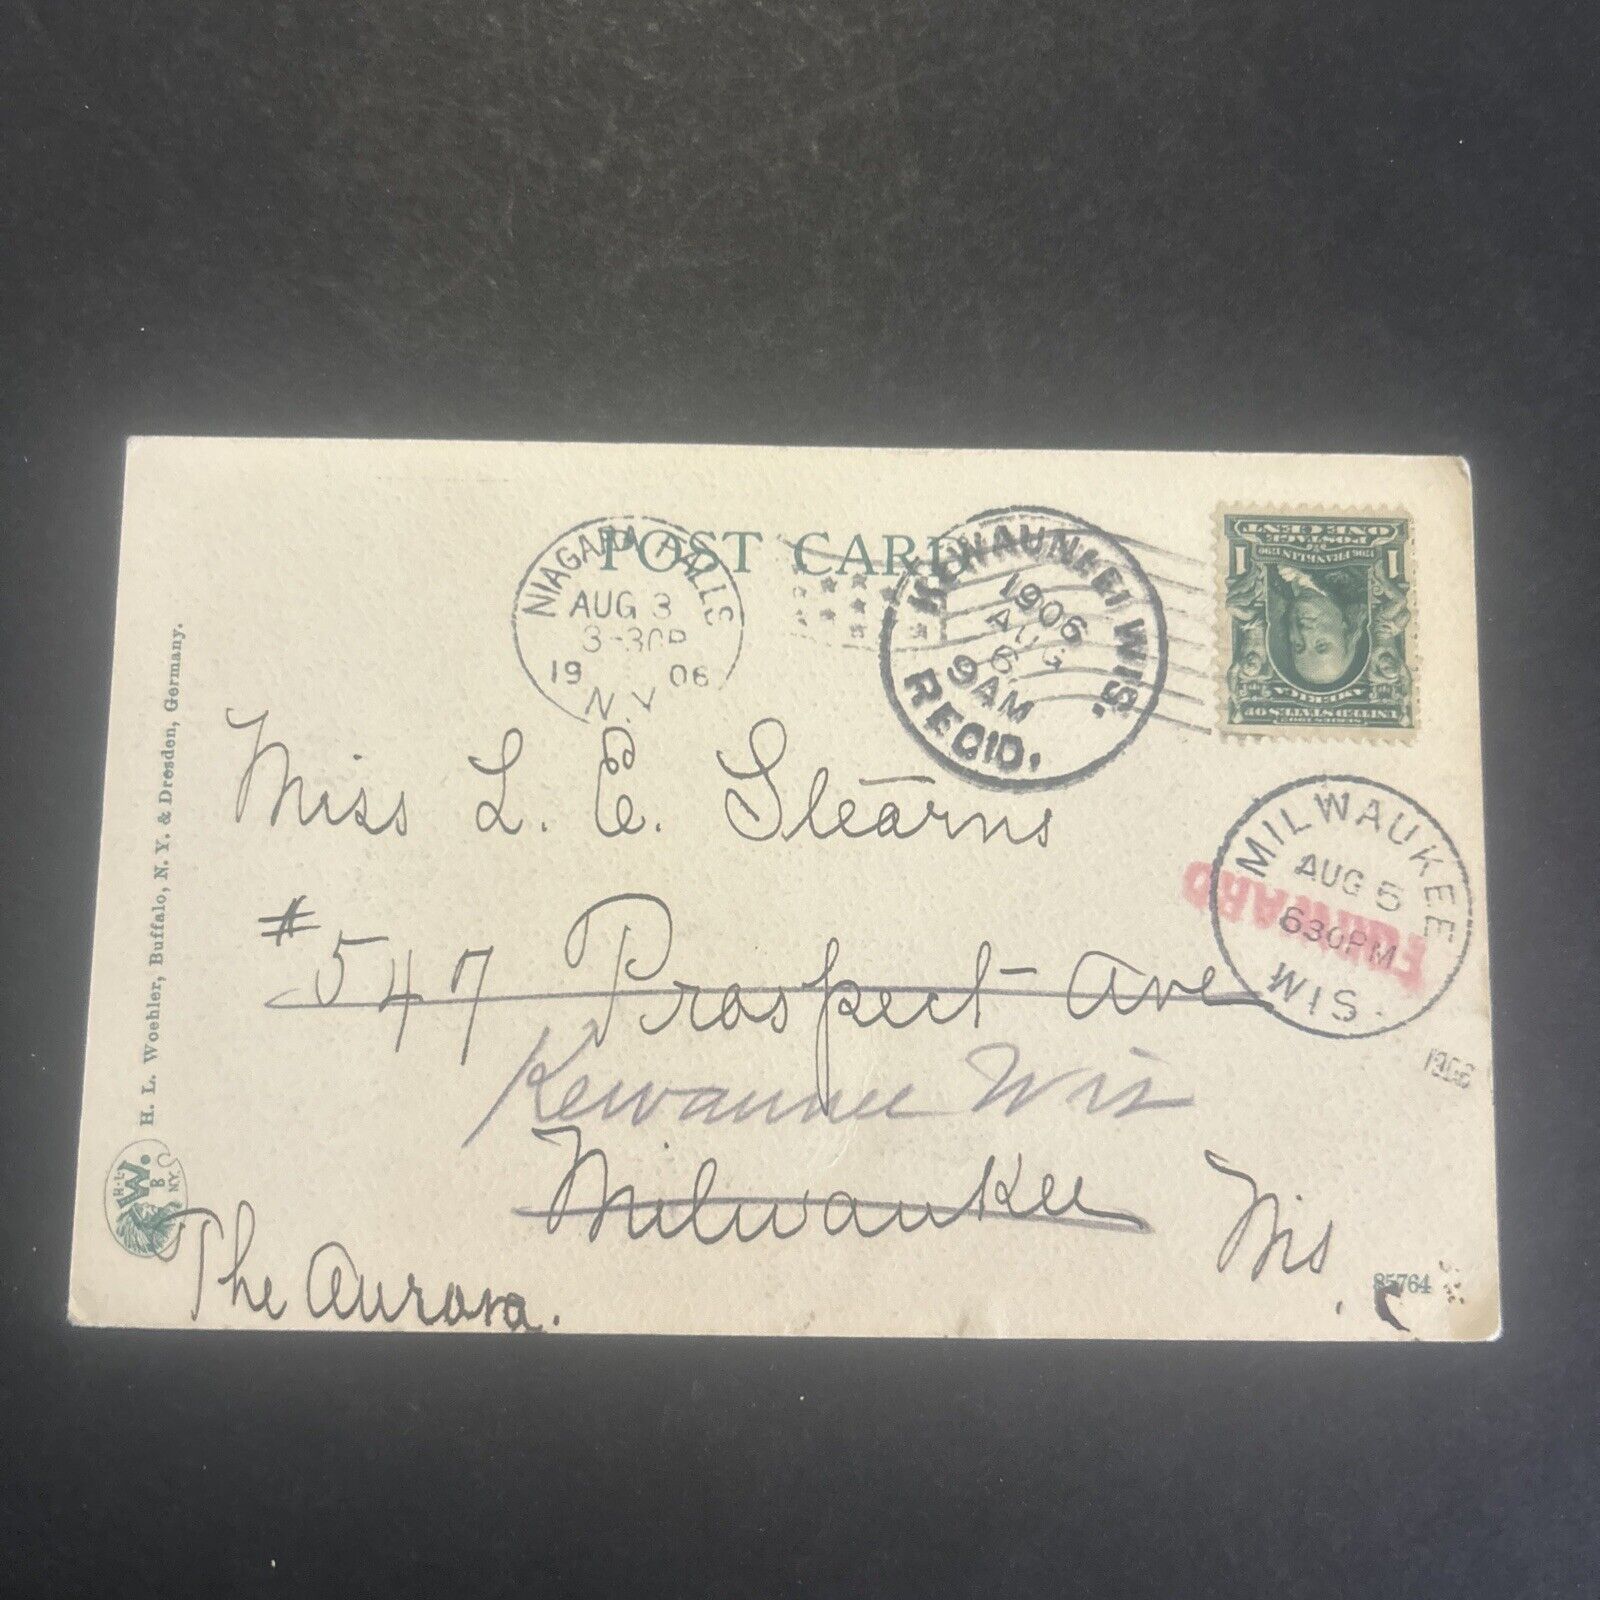 POST CARD
NIAGARA FALLS
AUG 3
3-30P
19 06
N.Y.
KEWAUNEE WIS.
1906
AUG
6
9AM
REC'D.
ONE CENT
POSTAGE
1706 FRANKLIN 1790
1 1
UNITED STATES OF
AMERICA
SERIES 1902
MILWAUKEE
AUG 5
630PM
WIS.
1906
FORWARD
Miss L. E. Stearns
#547 Prospect Ave
Kewaunee Wis
Milwaukee
Wis.
The Aurora.
85764
H. L. Woehler, Buffalo, N. Y. & Dresden, Germany.
H.L.
W.
B
N.Y.